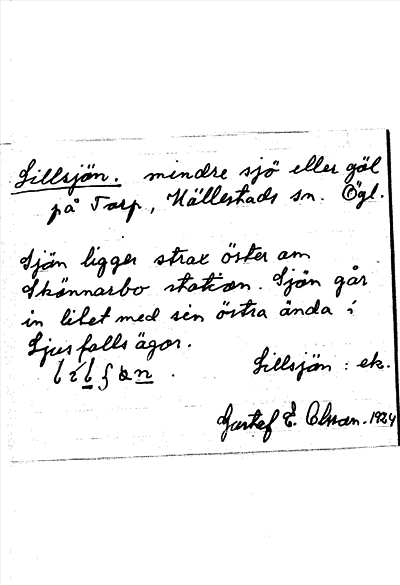 Lillsjön. mindre sjö eller göl
på Torp, Hällestads sn. Ögl.
Sjön ligger strax öster om
Skönnarbo station. Sjön går
in litet med sin östra ända i
Ljusfalls ägor.
Lillsjön : ek.
Gustaf E. Olsson. 1924